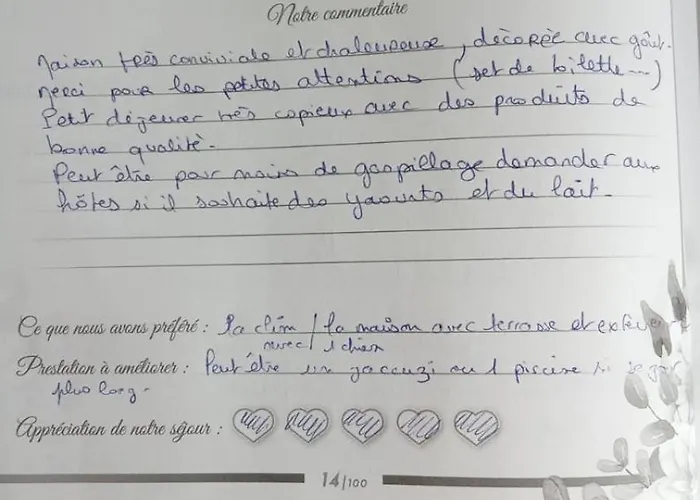 Notre commentaire
Maison très conviviale et chaleureuse, décorée avec goût.
Merci pour les petites attentions (set de toilette...)
Petit déjeuner très copieux avec des produits de
bonne qualité.
Peut être pour moins de gaspillage demander aux
hôtes si il souhaite des yaourts et du lait.
Ce que nous avons préféré : la clim / la maison avec terrasse et
avec 1 chien
Prestation à améliorer : Peut être un jaccuzi ou 1 piscine si
plus long.
Appréciation de notre séjour :
14/100